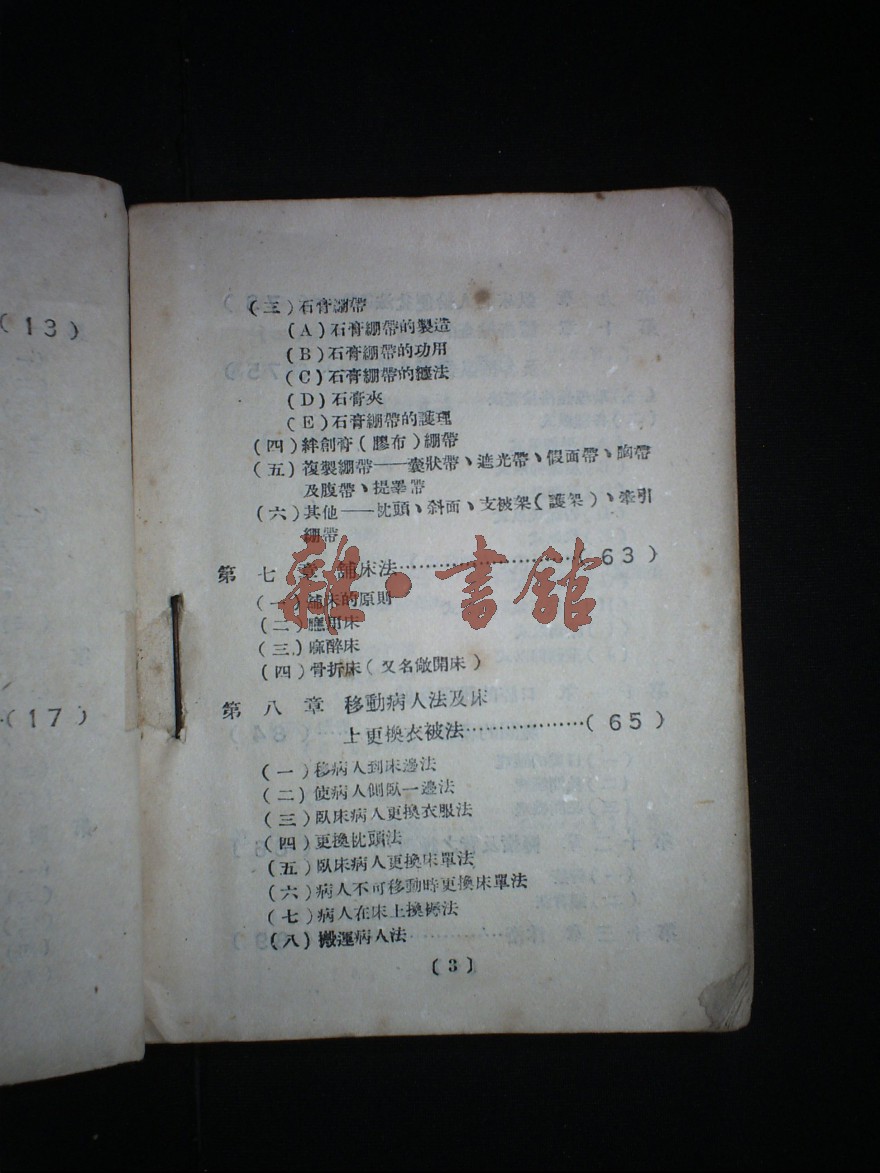 (13)
(17)
(三)石膏綳帶
(A)石膏綳帶的製造
(B)石膏綳帶的功用
(C)石膏綳帶的纏法
(D)石膏夾
(E)石膏綳帶的護理
(四)絆創膏(膠布)綳帶
(五)複製綳帶——囊狀帶、遮光帶、假面帶、胸帶
及腹帶、提睾帶
(六)其他——枕頭、斜面、支被架(護架)、牽引
綳帶
第七章 舖床法……………………(63)
(一)舖床的原則
(二)應用床
(三)麻醉床
(四)骨折床(又名敞開床)
第八章 移動病人法及床
上更換衣被法………………(65)
(一)移病人到床邊法
(二)使病人側臥一邊法
(三)臥床病人更換衣服法
(四)更換枕頭法
(五)臥床病人更換床單法
(六)病人不可移動時更換床單法
(七)病人在床上換褥法
(八)搬運病人法
(3)
雜·書館